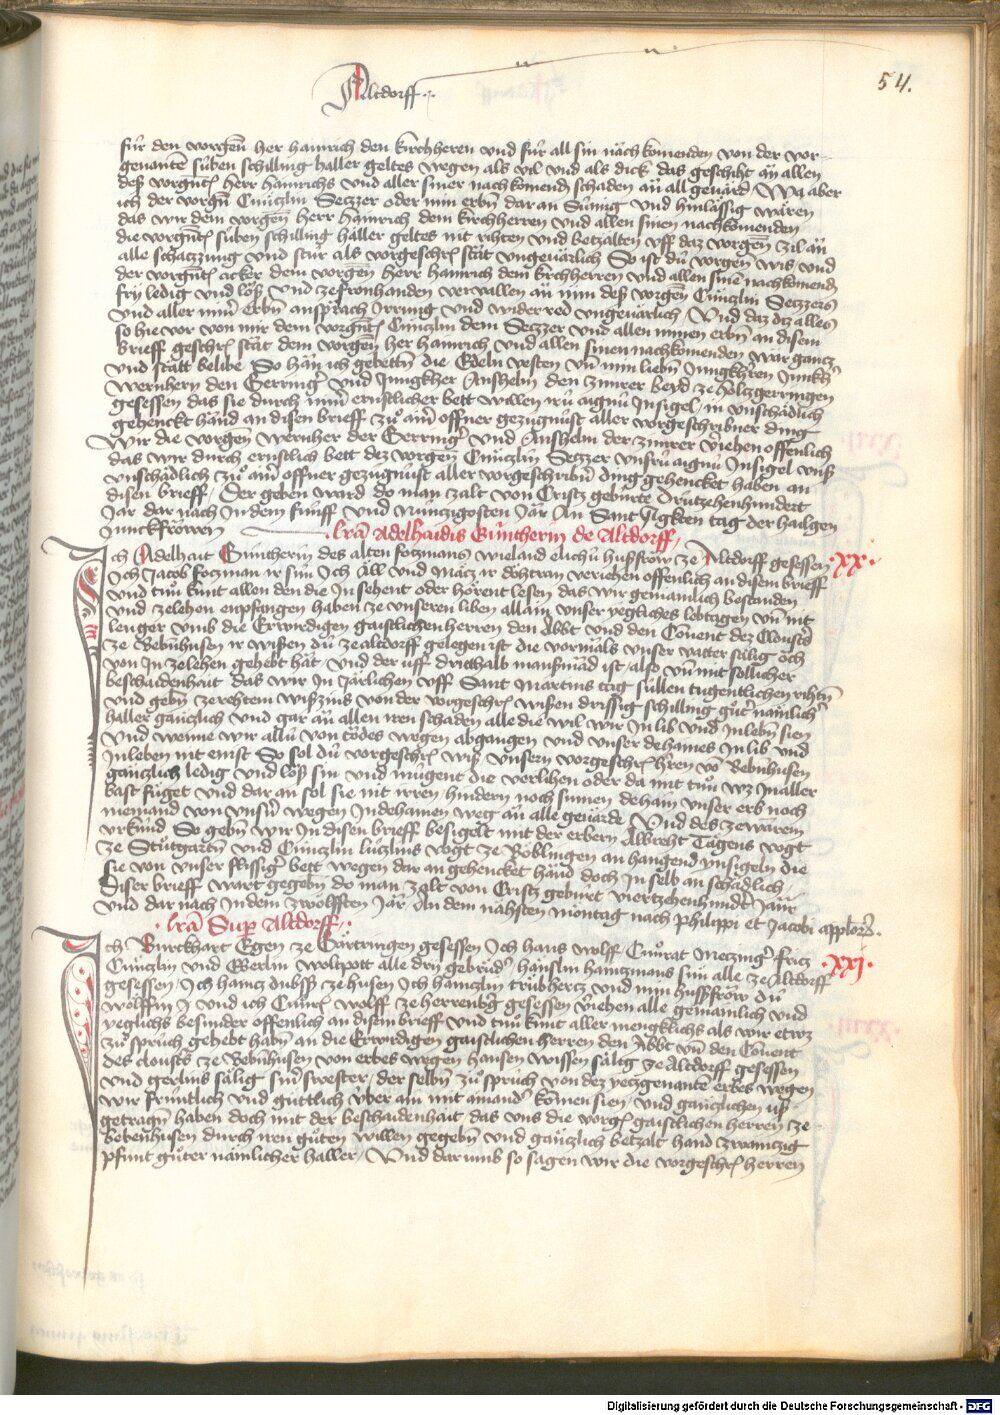 Altdorff
54.
für den vorgen̄ her hainrich den kirchheren und für all sin nachkomenden von der vor-
genante süben schilling haller geltes wegen als vil und als dick das geschiht än allen
deß vorgnt̄ herr hainrichs und aller siner nachkomend schaden än all geuärd Wa aber
ich der vorgn̄ Cüntzlin Setzzer oder min erbn̄ dar an Sümig und hinlässig wären
das wir dem vorgen̄ herr hainrich dem kirchherren und allen sinen nachkomenden
die vorgnt̄ süben schilling haller geltes nit rihten und betzalten uff daz vorgen̄ zil än
alle schatzzung und stür als vorgeschr̄ stät ungeuarlich So ist dü vorgen̄ wis und
der vorgnt̄ acker dem vorgen̄ herr hainrich dem kirchherren und allen sinē nachkomend
fry ledig und löß und ze fronhanden vervallen än min deß vorgen̄ Cüntzlin Setzzers
und aller minr̄ erbn̄ ansprach Irrung und widerred ungeuärlich Und daz diz alles
so hie vor von mir dem vorgnt̄ Cüntzlin dem Setzzer und allen minen erbn̄ an disem
brieff geschr̄ stät dem vorgen̄ her hainrich und allen sinen nachkomenden war gantz
und stätt belibe So hän ich gebettn̄ die Edeln vesten un̄ min liebn̄ Junckhren Junckh̄
wernhern den Gerring und Junckher Anshelm den zimrer beyd ze holtzgerringen
gesessen das sie durch minr̄ ernstlicher bett willen irü aignü Insigel / in unschädlich
gehenckt händ an disen brieff zu aim̄ offner gezügnüst aller vorgeschribner ding
Wir die vorgen̄ wernher der Gerringr̄ und Anshelm der zimrer v̄iehen offenlich
das wir durch ernstlich bett dez vorgen̄ Cüntzlin Setzzer unsrü aignü Insigel unß
unschädlich zu aim̄ offner gezügnüst aller vorgeschribn̄ ding gehencket haben an
disen brieff / Der geben ward do man zalt von Cristz gebürte Drützehenhundert
Jar dar nach In dem fünff und Nüntzigosten Jär An Sant Agthen tag der hailgen
Junckfrowen
lr̄a Adelhaidis Güntherin de Altdorff
xx.
Ich Adelhait Güntherin des alten fotzmans wieland elichü hußfrow ze Altdorff gesessen
Ich Jacob fotzman ir sun Ich All und Mätz ir dohtran veriehen offenlich an disem brieff
und tun kunt allen den die In sehent oder hörent lesen das wir gemainlich bestanden
und zelehen enpfangen haben ze unseren liben allain unser yegliches lebtagen un̄ nit
lenger umb die Erwirdigen gaistlichen herren den Abbt und den Couent dez Clousters
ze Bebenhusen ir wißen dü ze altdorff gelegen ist die vormals unser vatter sälig öch
von In zelehen gehebt hät / und der uff dritthalb mansmad ist / also un̄ mit sollicher
beschaidenhait das wir In Järlichen uff Sant Martins tag süllen tugentlichen rihtn̄
und gebn̄ ze rechtem wißzins von der vorgeschr̄ wißen drissig schilling gutr̄ nämlichr̄
haller gäntzlich und gar än allen iren schaden alle die wil wir In lib und In lebn̄ sien
und wenne wir allü von todes wegen abgangen und unser dehaines In lib und
In leben nit enist So sol dü vorgeschr̄ wiß unsern vorgeschr̄ hren vō Bebn̄husen
gäntzlich ledig und löß sin und mügent die verlihen oder da mit tun wz In aller
bast füget und dar an sol sie nit irren / hindern noch sumen dehain unser erb noch
niemand von unsrn̄ wegen In dehainen weg än alle geuärde Und des ze wärem
urkünd So gebn̄ wir In disen brieff besigelt mit der erbern Albreht Tagens vogt
ze Stütgarten und Cüntzlin lützlins vogt ze Böblingen an hangend ynsigeln die
sie von unser flissigr̄ bett wegen dar an gehencket händ doch In selb an schädlich
Diser brieff wart gegebn̄ do man zalt von Cristz gebürt viertzehenhundr̄t Jaur
und dar nach In dem zwölfften Jär An dem nähsten möntag nach philippi et Jacobi applor̄.
lr̄a Sup̄ Altdorff
xxj.
Ich Burckhart Egen ze Gärtringen gesessen Ich hans wolff Cunrat Metzingr̄ fritz
Cüntzlin und Eberlin woltpott alle dry gebrüdr̄ / hänslin haintzmans sun alle ze Altdorff
gesessen / Ich haintz dubß ze husen Ich häntzlin trübhertz und min hußfröw dü
wölffin J und ich Cunr̄ wolff ze herrenbḡ gesessen v̄iehen alle gemainlich und
yeglichs besunder offenlich an disem brieff und tun kunt aller mengklichs als wir etwz
zu sprüch gehebt habn̄ an die Erwirdigen gaistlichen herren den Abbt un̄ den Couent
des clousters ze Bebn̄husen von erbes wegen hansen wissen sälig ze Altdorff gesessen
und gerlins sälig sinr̄ swester / der selbn̄ zu sprüch von dez yetzgenantē erbes wegen
wir früntlich und güttlich über ain mit ainandr̄ komen sien / und gäntzlichen uß
getragn̄ haben doch mit der beschaidenhait das uns die vorgn̄ gaistlichen herren ze
bebenhusen durch iren guten willen gegebn̄ und gäntzlich betzalt hand zwaintzig
pfunt guter nämlicher haller / Und dar umb so sagen wir die vorgeschr̄ herren
Digitalisierung gefördert durch die Deutsche Forschungsgemeinschaft - DFG